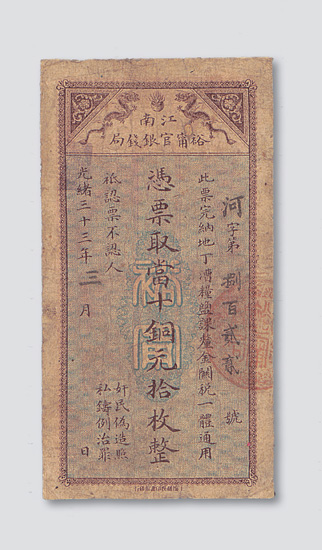 江南
裕甯官銀錢局
河字第捌百貳貳號
此票完納地丁漕糧鹽課釐金關稅一體通用
憑票取當十銅元拾枚整
祗認票不認人
奸民偽造照
私鑄例治罪
光緒三十三年三月 日